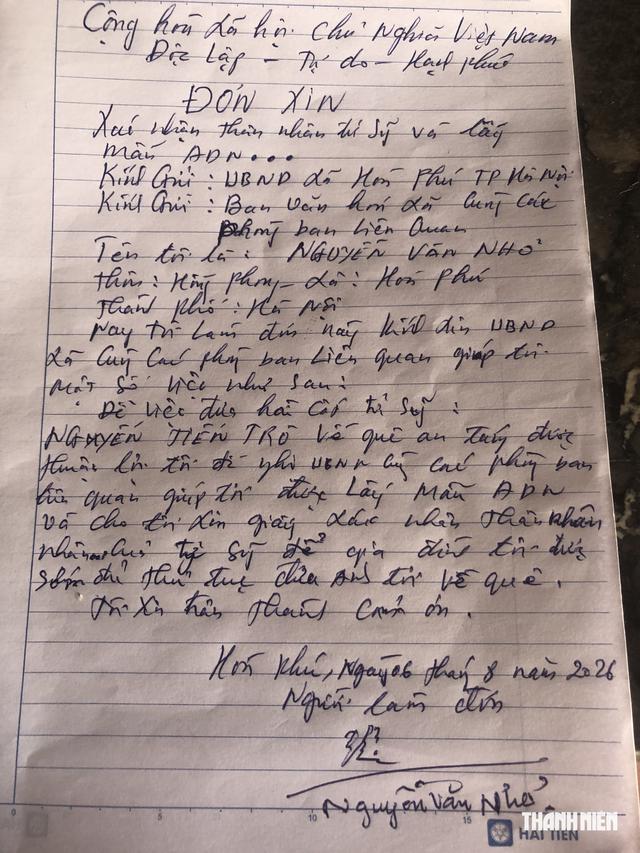 Cộng hoà xã hội chủ nghĩa Việt Nam
Độc lập - Tự do - Hạnh phúc
ĐƠN XIN
Xác nhận thân nhân liệt sỹ và lấy
mẫu ADN...
Kính Gửi: UBND xã Hoà Phú TP Hà Nội
Kính Gửi: Ban văn hoá xã cùng các
phòng ban liên quan
Tên tôi là: NGUYỄN VĂN NHỞ
thôn: Hồng Phong - xã: Hoà Phú
thành phố: Hà Nội
Nay tôi làm đơn này kính đến UBND
xã cùng các phòng ban liên quan giúp tôi
một số việc như sau:
Để việc đưa hài cốt liệt sỹ:
NGUYỄN TIẾN TRÒ về quê an táng được
thuận lợi tôi đề nghị UBND cùng các phòng ban
liên quan giúp tôi được lấy mẫu ADN
và cho tôi xin giấy xác nhận thân nhân
liệt sỹ để gia đình tôi được
sớm đủ thủ tục đưa anh tôi về quê.
Tôi xin chân thành cảm ơn.
Hoà Phú, Ngày 06 tháng 8 năm 2026
Người làm đơn
Nguyễn Văn Nhở
0 5 10 15
THANH NIÊN
HẢI TIẾN